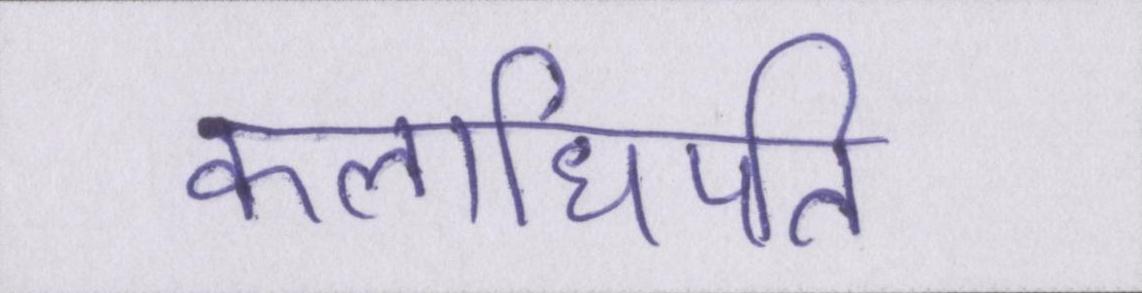 कलाधिपति